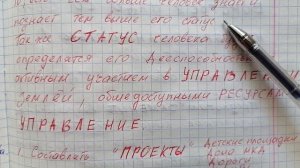 знает тем выше его статус
Также СТАТУС человека
определяется его Дееспособностью
активным участием в УПРАВЛЕНИИ
Землёй, общедоступными РЕСУРСАМИ
УПРАВЛЕНИЕ.
1. Составлять "ПРОЕКТЫ" Детские площадки
Дома МКД
Дороги